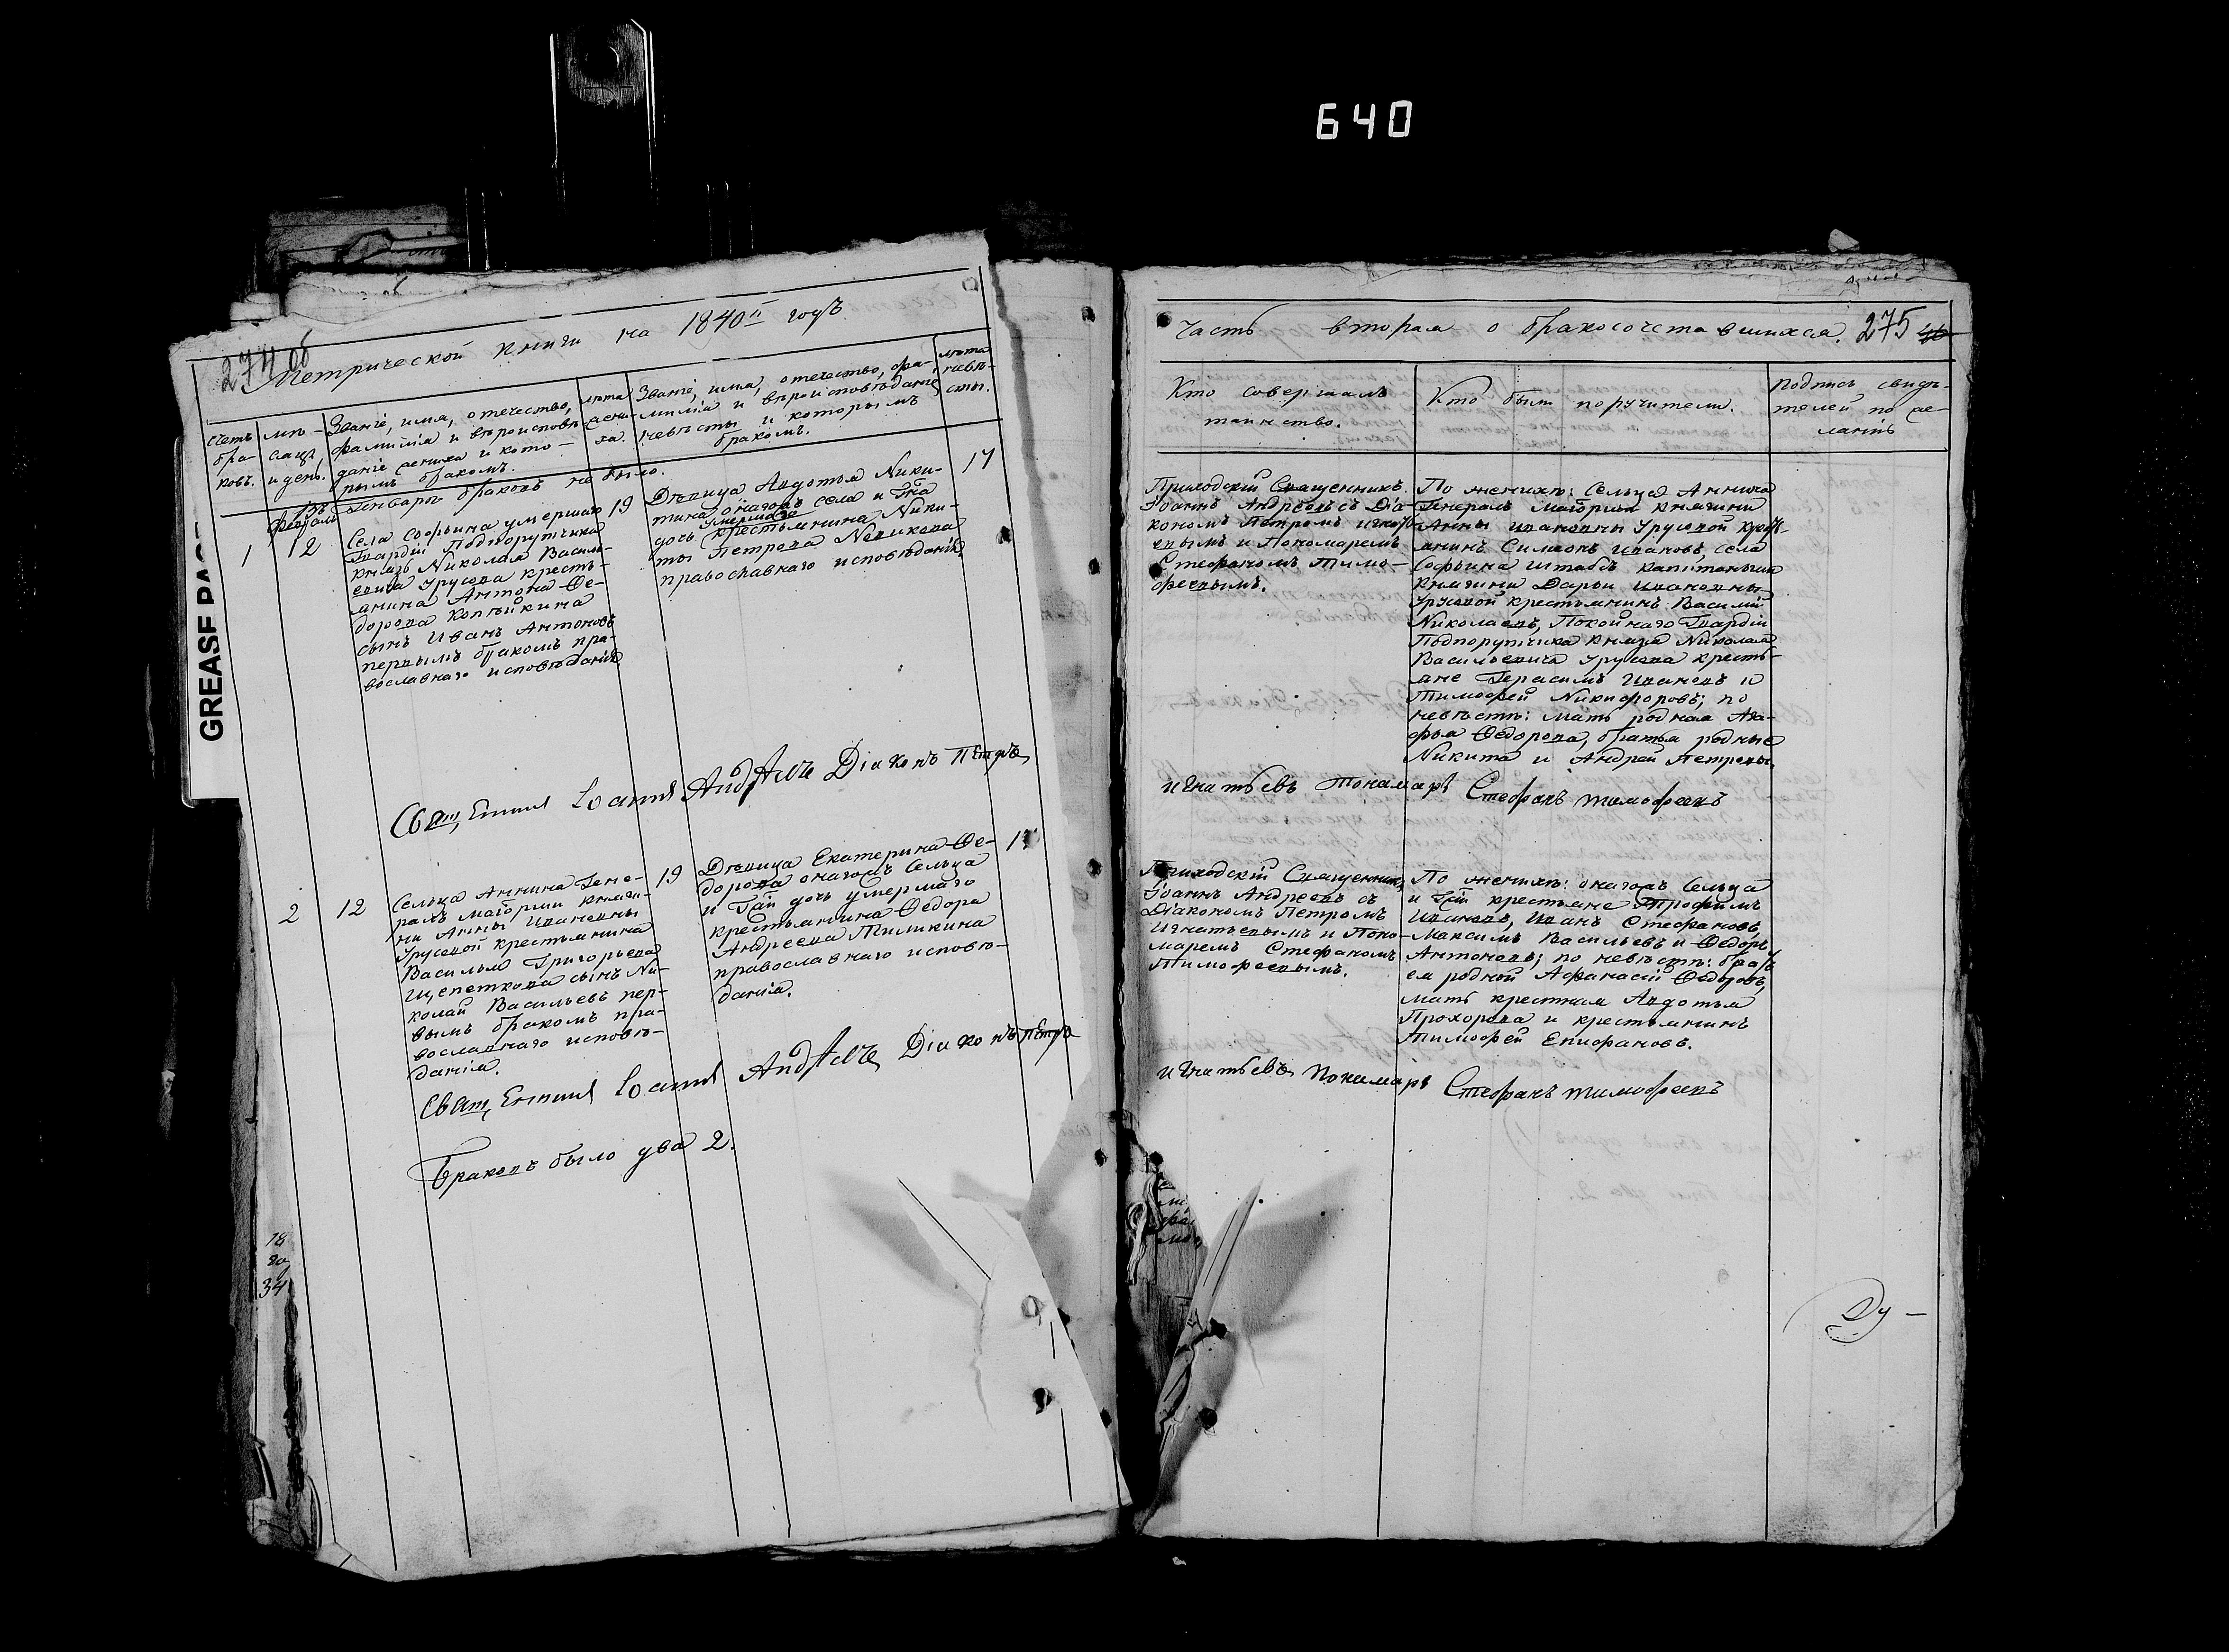 640
274 об
Метрической книги на 1840й годъ
Счетъ бра-ковъ.
мѣ-сяцъ и день.
Званіе, имя, отечество,
фамилія и вѣроисповѣ-
даніе жениха и кото-
рымъ бракомъ.
лѣта жени-ха.
Званіе, имя, отечество, фа-
милія и вѣроисповѣданіе
невѣсты и которымъ
бракомъ.
лѣта невѣ-сты.
Въ Генварѣ браковъ не было.
Февраль
1
12
Села Софьина умершаго
Гвардіи Подпорутчика
князь Николая Василь-
евича Урусова кресть-
янина Антона Ѳе-
дорова Копѣйкина
сынъ Иванъ Антоновъ
первымъ бракомъ пра-
вославнаго исповѣданія
19
Дѣвица Авдотья Ники-
тина онагожъ села и Гна
умершаго
дочь крестьянина Ники-
ты Петрова Новикова
православнаго исповѣданія
17
Священникъ Іоаннъ Андреевъ Діаконъ Петръ
2
12
Сельца Аннина Гене-
ралъ Маіорши княги-
ни Анны Ивановны
Урусовой крестьянина
Василья Григорьева
Щепеткова сынъ Ни-
колай Васильевъ пер-
вымъ бракомъ пра-
вославнаго исповѣ-
данія.
19
Дѣвица Екатерина Ѳе-
дорова онагожъ Сельца
и Гжи дочь умершаго
крестьянина Ѳедора
Андреева Тимкина
православнаго исповѣ-
данія.
Священникъ Іоаннъ Андреевъ Діаконъ Петръ
Браковъ было два 2.
18
34
Часть вторая о бракосочетавшихся. 275
Кто совершалъ
таинство.
Кто были поручители.
Подпись свидѣ-
телей по же-
ланію
Приходскій Священникъ
Іоаннъ Андреевъ съ Діа-
кономъ Петромъ Игнать-
евымъ и Пономаремъ
Стефаномъ Тимо-
феевымъ.
По женихѣ: Сельца Аннина
Генералъ Маіорши княгини
Анны Ивановны Урусовой кресть-
янинъ Симеонъ Ивановъ, села
Софьина Штабсъ капитанъши
княгини Дарьи Ивановны
Урусовой крестьянинъ Василій
Николаевъ, Покойнаго Гвардіи
Подпорутчика князя Николая
Васильевича Урусова кресть-
яне Герасимъ Ивановъ и
Тимофей Никифоровъ; по
невѣстѣ: мать родная Ага-
фья Ѳедорова, братья родные
Никита и Андрей Петровы.
Игнатьевъ Пономарь Стефанъ Тимофеевъ
Приходскій Священникъ
Іоаннъ Андреевъ съ
Діакономъ Петромъ
Игнатьевымъ и Поно-
маремъ Стефаномъ
Тимофеевымъ.
По женихѣ: онагожъ Сельца
и Гжи крестьяне Трофимъ
Ивановъ, Иванъ Стефановъ,
Максимъ Васильевъ и Ѳедоръ
Антоновъ; по невѣстѣ: братъ
ея родной Афанасій Ѳедоровъ,
мать крестная Авдотья
Прохорова и крестьянинъ
Тимофей Епифановъ.
Игнатьевъ Пономарь Стефанъ Тимофеевъ
Ду-
GREASE PAG